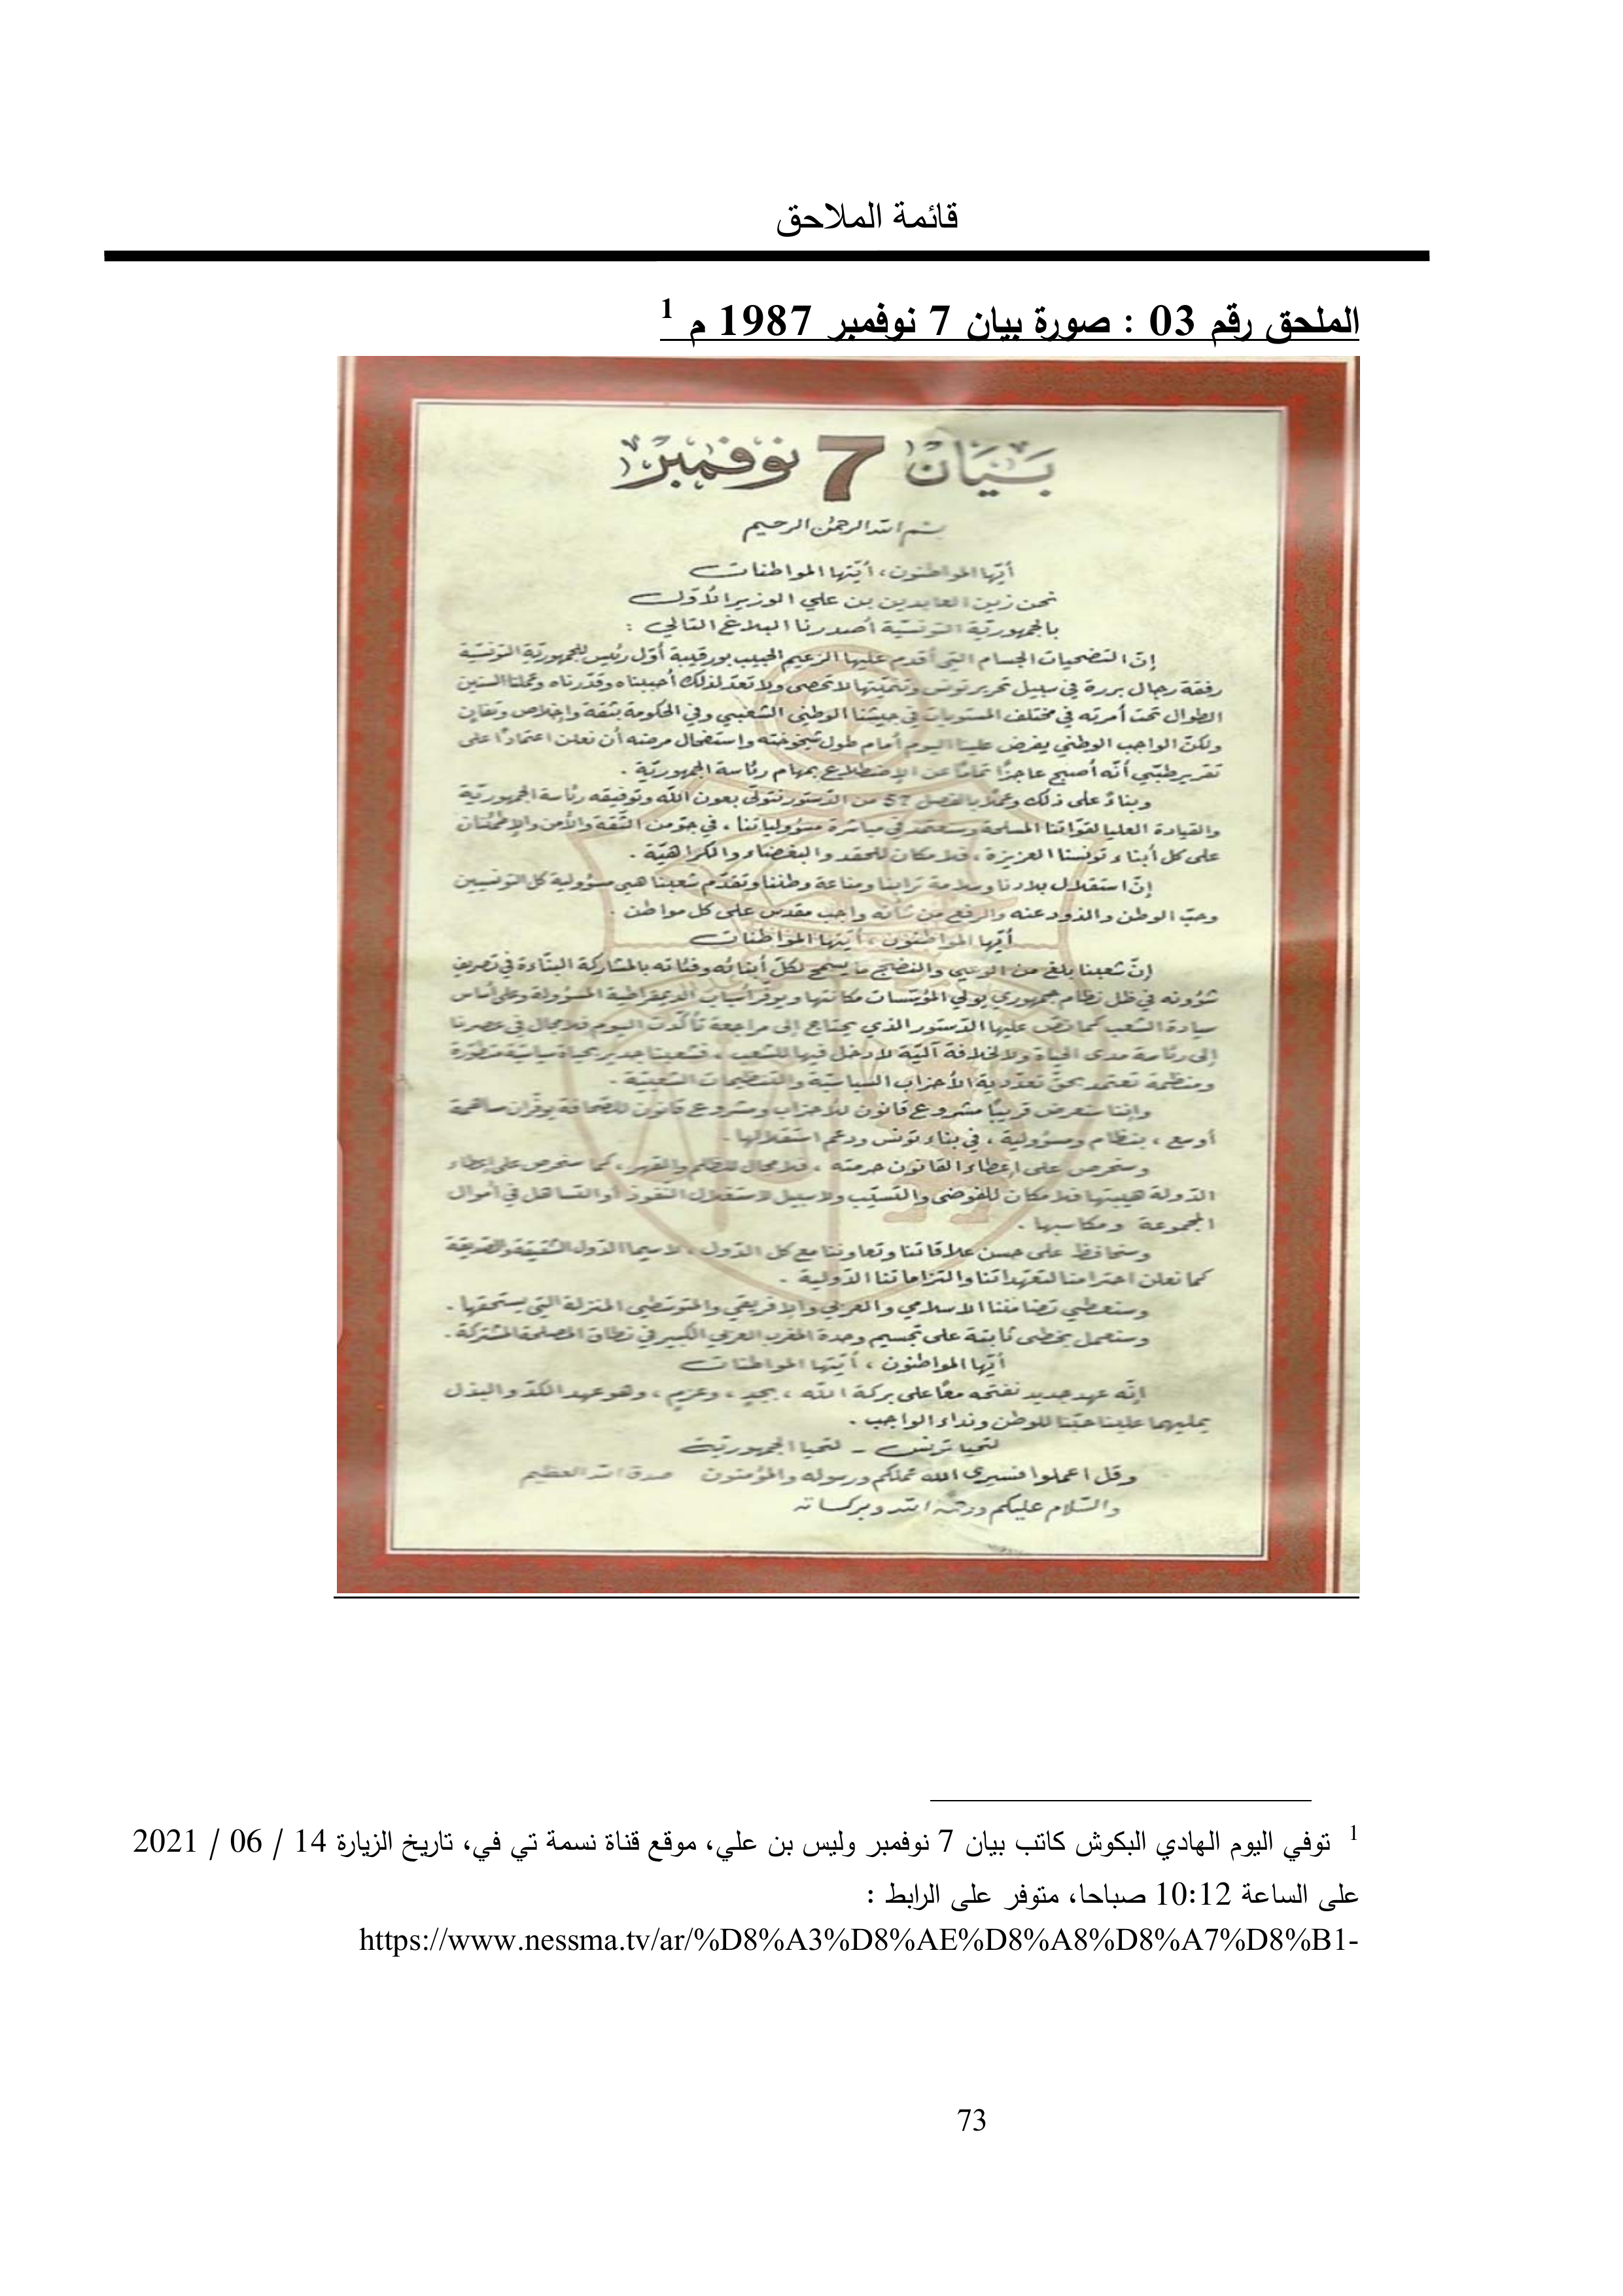 قائمة الملاحق
الملحق رقم 03 : صورة بيان 7 نوفمبر 1987 م 1
بيان 7 نوفمبر
بسم الله الرحمن الرحيم
أيّها المواطنون، أيّتها المواطنات
نحن زين العابدين بن علي الوزير الأوّل
بالجمهوريّة التونسيّة أصدرنا البلاغ التالي :
إنّ التضحيات الجسام التي أقدم عليها الزعيم الحبيب بورقيبة أوّل رئيس للجمهوريّة التونسيّة
رفقة رجال بررة في سبيل تحرير تونس وتنميّتها لا تحصى ولا تعدّ لذلك أحببناه وقدّرناه وعملنا السنين
الطوال تحت أمرته في مختلف المستويات في جيشنا الوطني الشعبي وفي الحكومة بثقة وإخلاص وتفان
ولكنّ الواجب الوطني يفرض علينا اليوم أمام طول شيخوخته واستفحال مرضه أن نعلن اعتمادًا على
تقرير طبّي أنّه أصبح عاجزًا تمامًا عن الإضطلاع بمهام رئاسة الجمهوريّة .
وبناءً على ذلك وعملًا بالفصل 57 من الدّستور نتولّى بعون الله وتوفيقه رئاسة الجمهوريّة
والقيادة العليا لقوّاتنا المسلحة وسنعتمد في مباشرة مسؤولياتنا ، في جوّ من الثّقة والأمن والإطمئنان
على كل أبناء تونسنا العزيزة ، فلا مكان للحقد والبغضاء والكراهيّة .
إنّ استقلال بلادنا وسلامة ترابنا ومناعة وطننا وتقدّم شعبنا هي مسؤولية كل التونسيين
وحبّ الوطن والذود عنه والرفع من شأنه واجب مقدس على كل مواطن .
أيّها المواطنون ، أيّتها المواطنات
إنّ شعبنا بلغ من الوعي والنضج ما يسمح لكلّ أبنائه وفئاته بالمشاركة البنّاءة في تصريف
شؤونه في ظل نظام جمهوري يولي المؤسّسات مكانتها ويوفّر أسباب الديمقراطية المسؤولة وعلى أساس
سيادة الشعب كما نصّ عليها الدّستور الذي يحتاج إلى مراجعة تأكّدت اليوم فلا مجال في عصرنا
إلى رئاسة مدى الحياة ولا لخلافة آليّة لا دخل فيها للشعب ، فشعبنا جدير بحياة سياسيّة متطوّرة
ومنظمة تعتمد بحقّ تعدّدية الأحزاب السياسيّة والتنظيمات الشعبيّة .
وإننا سنعرض قريبًا مشروع قانون للأحزاب ومشروع قانون للصّحافة يوفّران مساهمة
أوسع ، بنظام ومسؤولية ، في بناء تونس ودعم استقلالها .
وسنحرص على إعطاء القانون حرمته ، فلا مجال للظلم والقهر ، كما سنحرص على إعطاء
الدّولة هيبتها فلا مكان للفوضى والتسيّب ولا سبيل لاستغلال النفوذ أو التساهل في أموال
المجموعة ومكاسبها .
وسنحافظ على حسن علاقاتنا وتعاوننا مع كل الدّول ، لا سيما الدّول الشقيقة والصّديقة
كما نعلن احترامنا لتعهّداتنا والتزاماتنا الدّولية .
وسنعطي تضامننا الاسلامي والعربي والإفريقي والمتوسّطي المنزلة التي يستحقها .
وسنعمل بخطى ثابتة على تجسيم وحدة المغرب العربي الكبير في نطاق المصلحة المشتركة .
أيّها المواطنون ، أيّتها المواطنات
إنّه عهد جديد نفتحه معًا على بركة الله ، بجدٍ ، وعزمٍ ، وهو عهد الكدّ والبذل
يمليهما علينا حبّنا للوطن ونداء الواجب .
لتحيا تونس - لتحيا الجمهوريّة
وقل اعملوا فسيرى الله عملكم ورسوله والمؤمنون صدق الله العظيم
والسّلام عليكم ورحمة الله وبركاته
1 توفي اليوم الهادي البكوش كاتب بيان 7 نوفمبر وليس بن علي، موقع قناة نسمة تي في، تاريخ الزيارة 14 / 06 / 2021
على الساعة 10:12 صباحا، متوفر على الرابط :
https://www.nessma.tv/ar/%D8%A3%D8%AE%D8%A8%D8%A7%D8%B1-
73